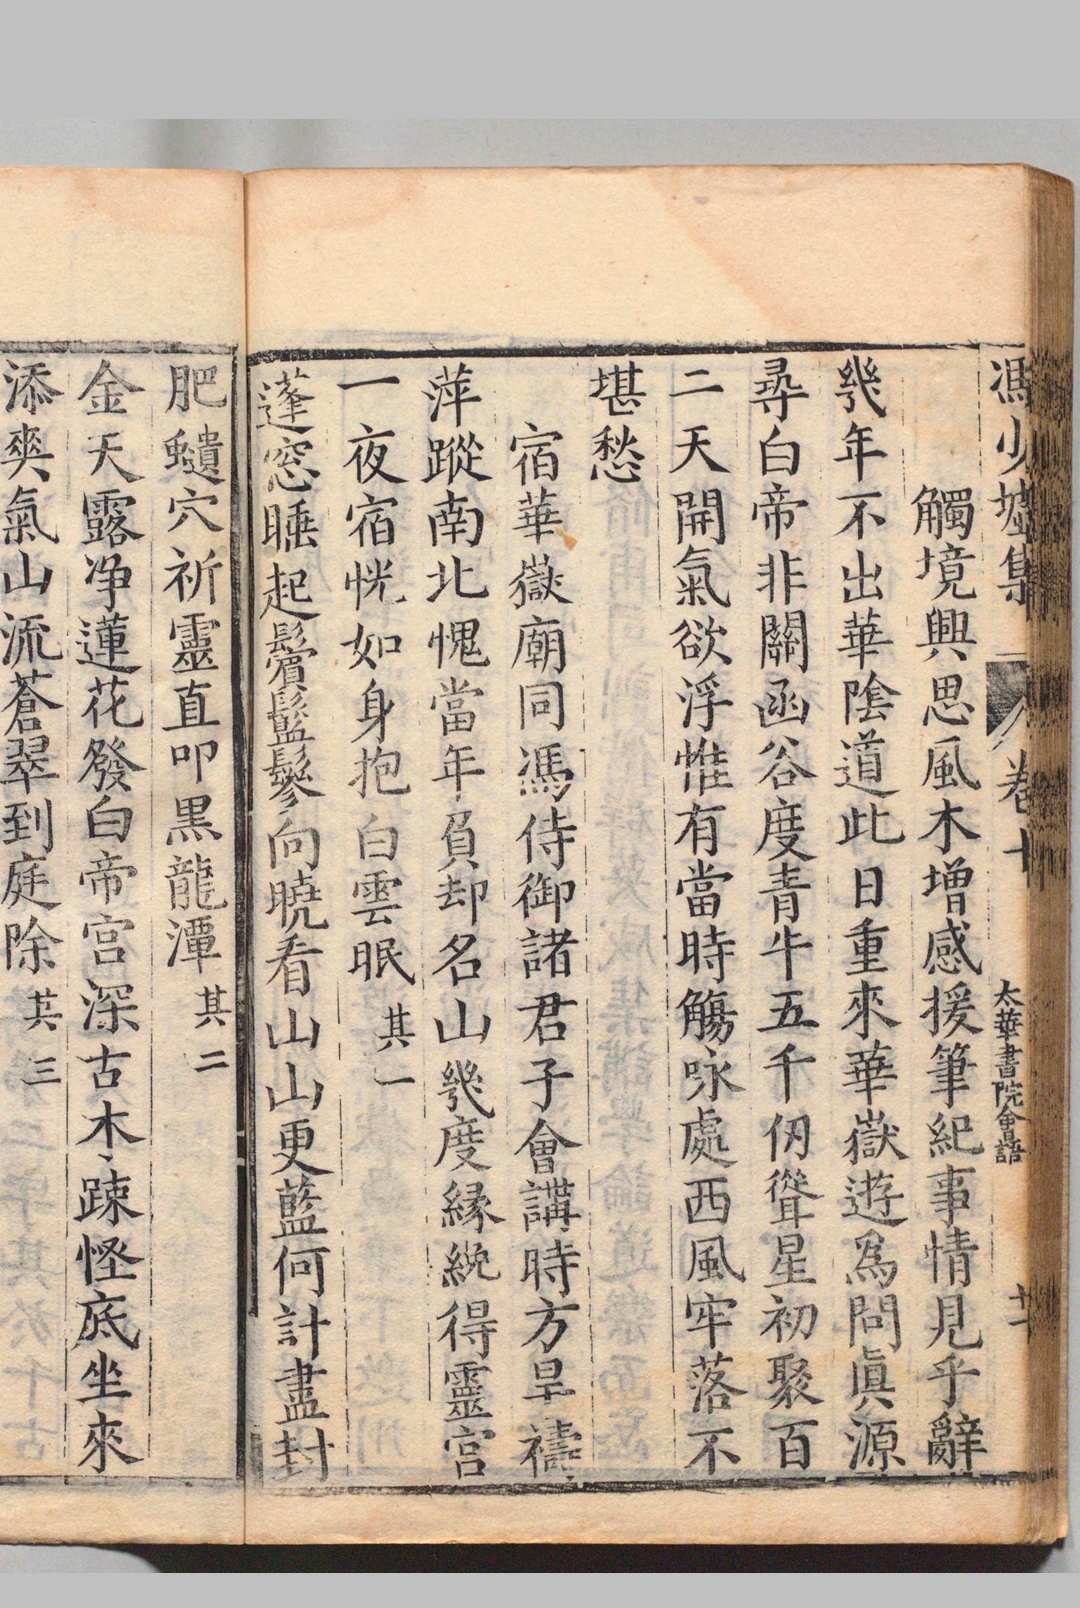 馮少墟集 卷十 太華書院會語 十一
觸境興思風木增感援筆紀事情見乎辭
幾年不出華陰道此日重來華嶽遊爲問眞源
尋白帝非關函谷度青牛五千仞聳星初聚百
二天開氣欲浮惟有當時觴咏處西風牢落不
堪愁
宿華嶽廟同馮侍御諸君子會講時方旱禱
萍蹤南北愧當年負却名山幾度緣纔得靈宮
一夜宿恍如身抱白雲眠其一
蓬窓睡起鬢鬖鬖向曉看山山更藍何計盡封
肥䗽穴祈靈直叩黒龍潭其二
金天露净蓮花發白帝宮深古木踈怪底坐來
添爽氣山流蒼翠到庭除其三